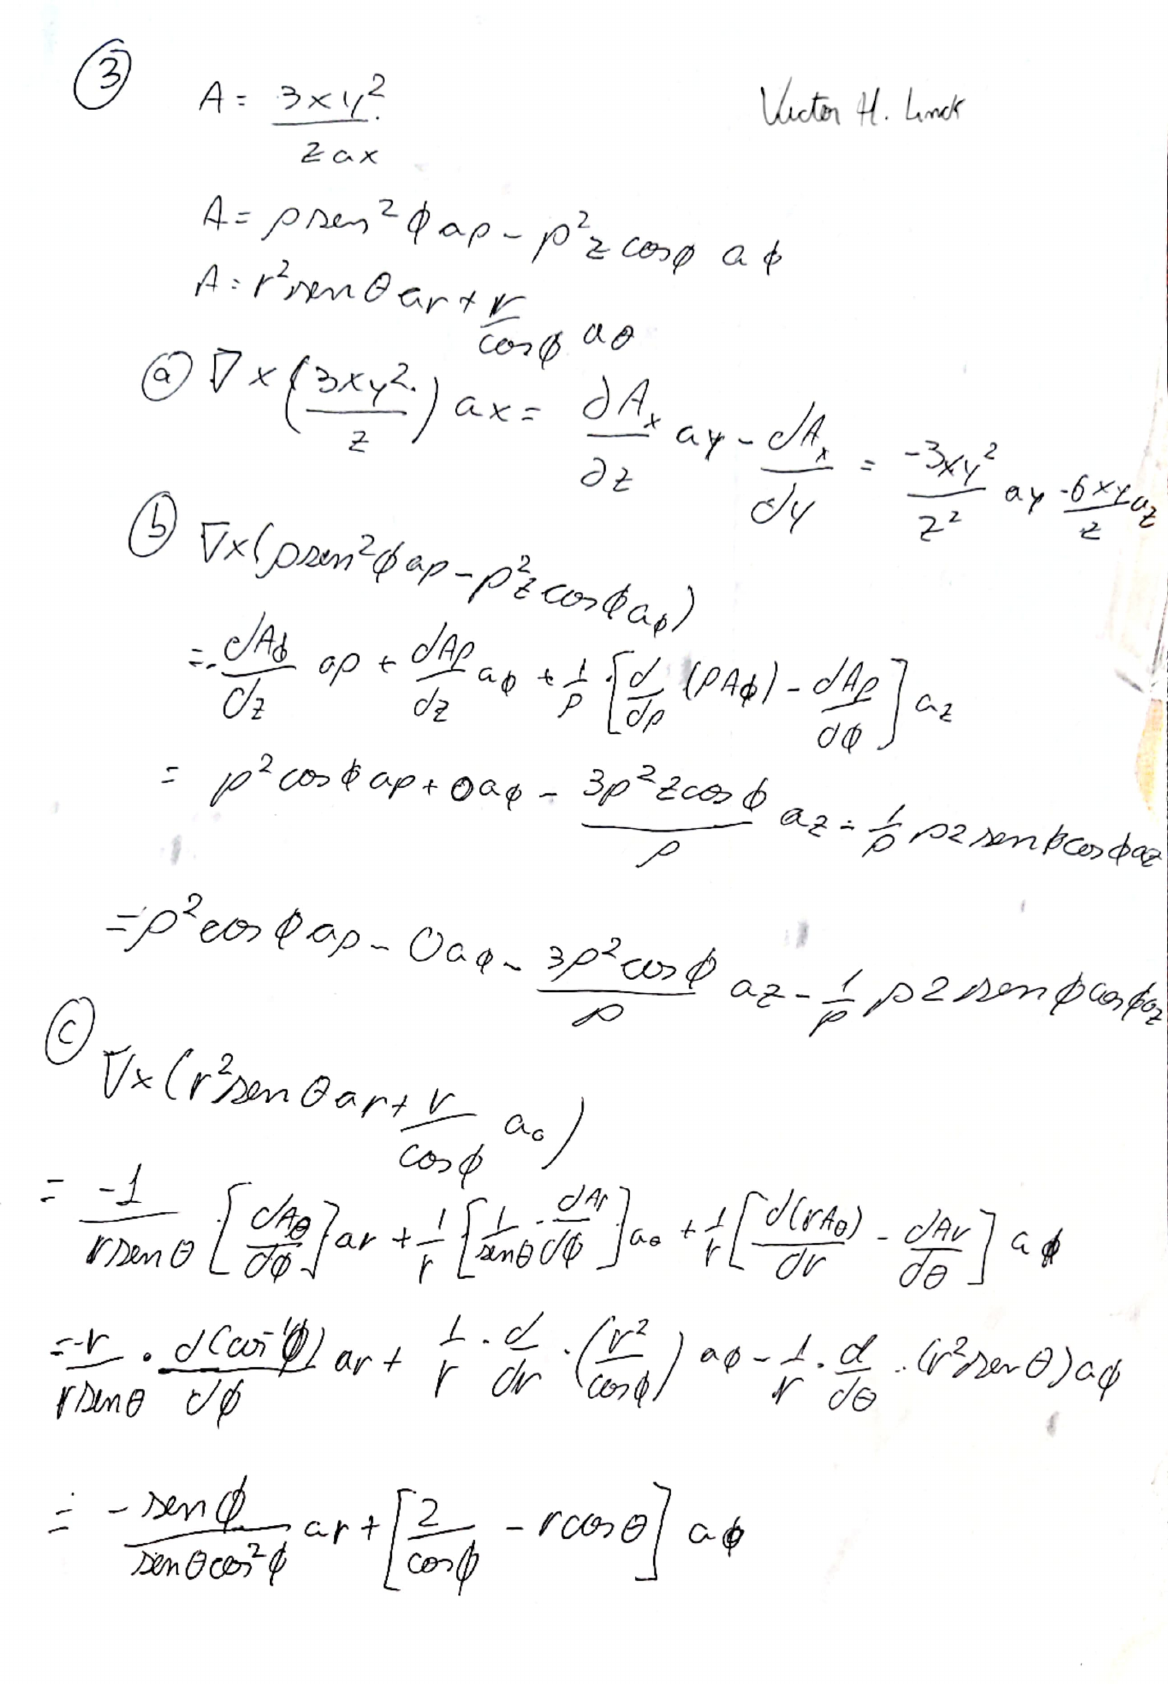 ③
A = 3xy² / z ax
Victor H. Linck
A = ρ sen²ϕ aρ - ρ²z cosϕ aϕ
A = r² sen θ ar + r / cosϕ aθ
ⓐ ∇ × (3xy² / z) ax = ∂Ax/∂z ay - dAx/dy = -3xy²/z² ay - 6xy/z az
ⓑ ∇×(ρ sen²ϕ aρ - ρ²z cosϕ aϕ)
= - dAϕ/dz aρ + dAρ/dz aϕ + 1/ρ [d/dρ (ρAϕ) - dAρ/dϕ] az
= ρ² cosϕ aρ + 0aϕ - 3ρ²z cosϕ / ρ az - 1/ρ ρ2 senϕ cosϕ az
= ρ² cosϕ aρ - 0aϕ - 3ρ² cosϕ / ρ az - 1/ρ ρ2 senϕ cosϕ az
ⓒ
∇×(r² sen θ ar + r / cosϕ aθ)
= -1 / r sen θ [dAθ/dϕ] ar + 1/r [1/senθ · dAr/dϕ] aθ + 1/r [d(rAθ)/dr - dAr/dθ] aϕ
= -r / r senθ · d(cos⁻¹ϕ)/dϕ ar + 1/r · d/dr · (r²/cosϕ) aϕ - 1/r · d/dθ · (r² sen θ) aϕ
= - senϕ / senθ cos²ϕ ar + [2/cosϕ - r cosθ] aϕ